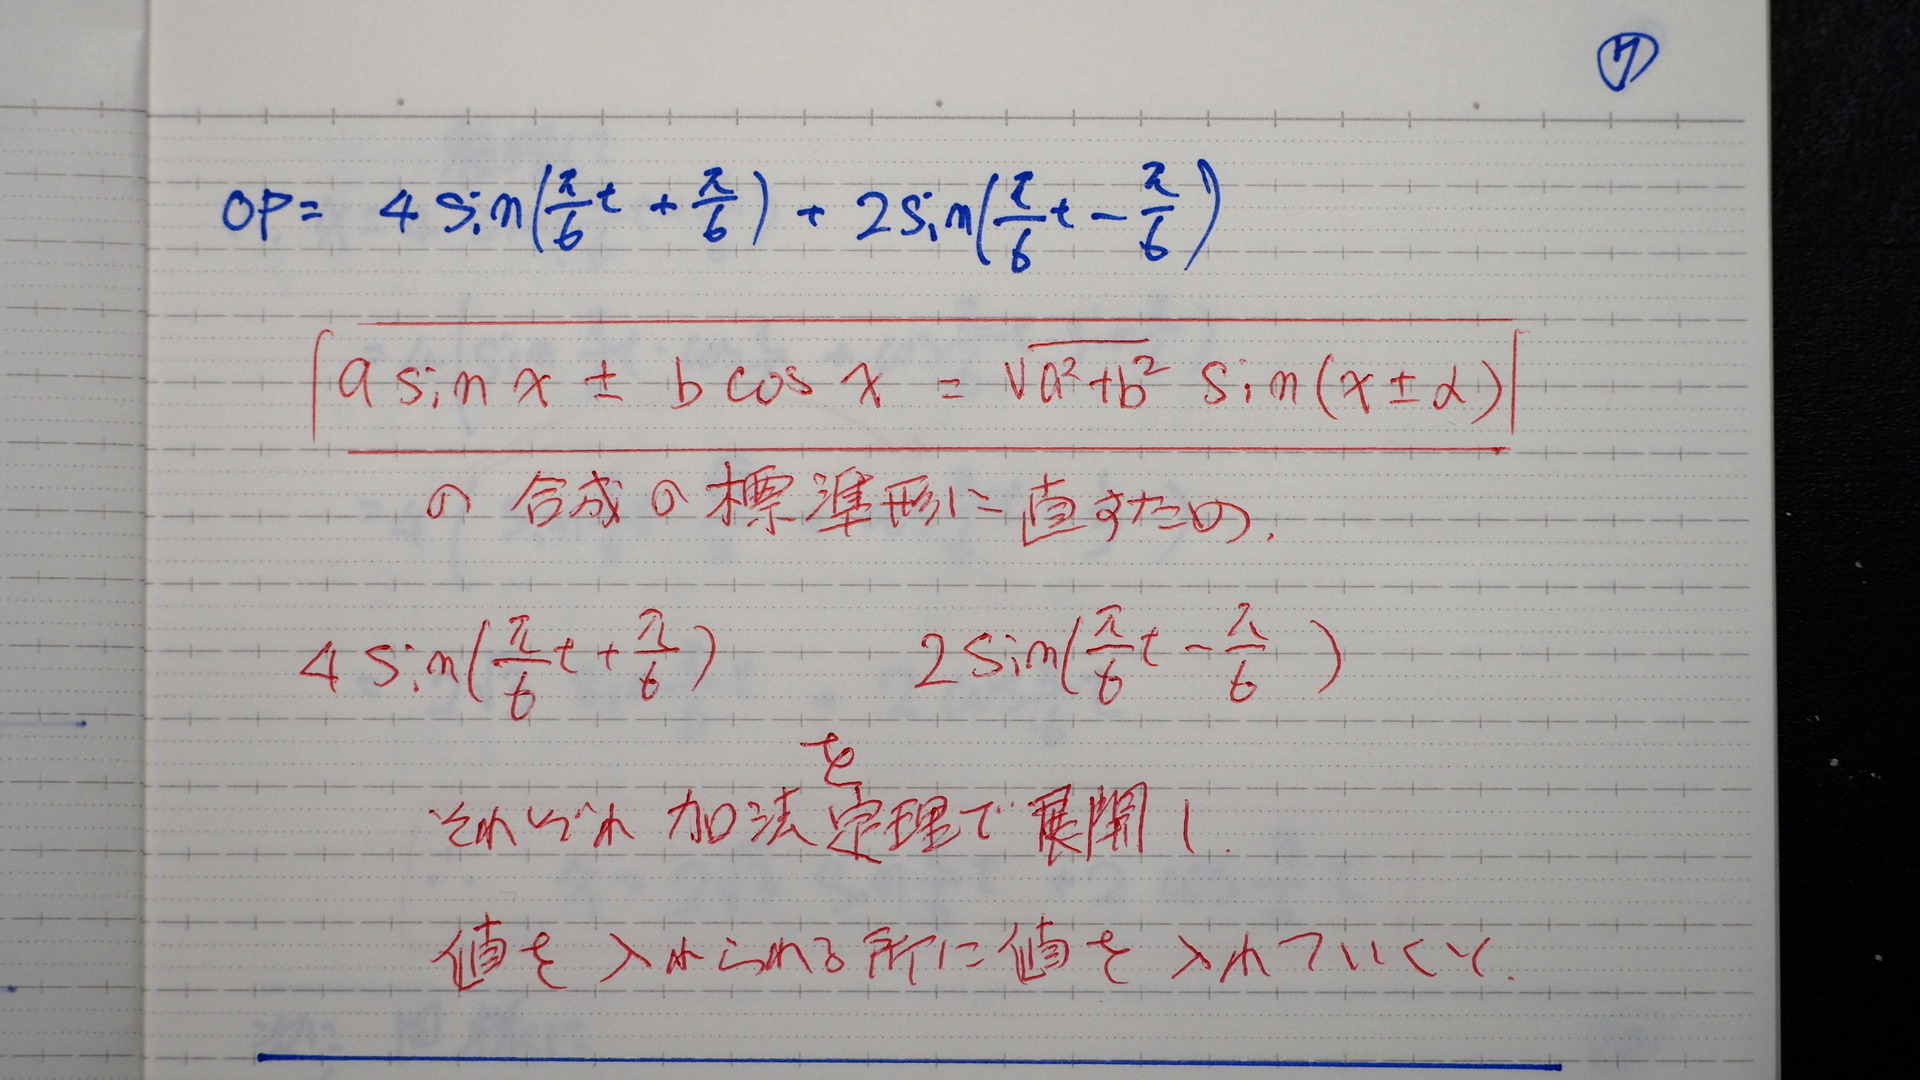 ⑦
OP= 4 sin(π/6 t + π/6) + 2 sin(π/6 t − π/6)
a sin x ± b cos x = √a²+b² sin(x±α)
の合成の標準形に直すため、
4 sin(π/6 t + π/6) 2 sin(π/6 t − π/6)
を
それぞれ 加法定理で展開し、
値を入れられる所に値を入れていくと、